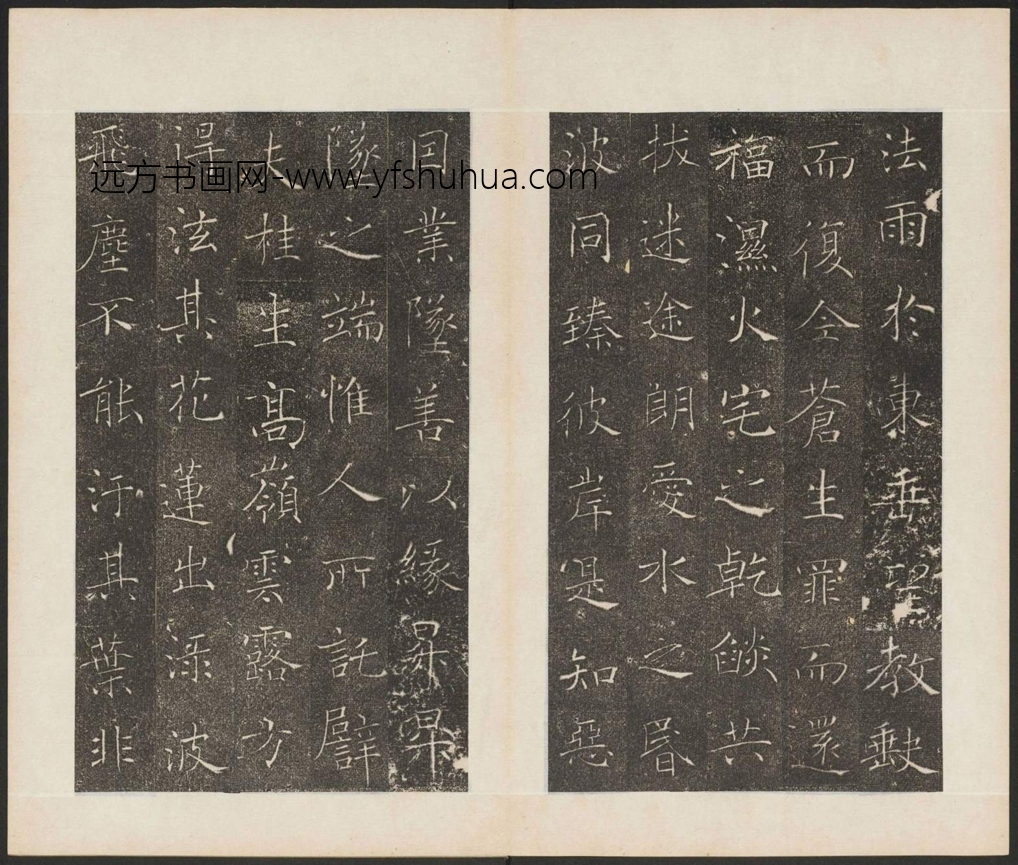 法雨於東垂聖教缺
而復全蒼生罪而還
福濕火宅之乾燄共
拔迷途朗愛水之昬
波同臻彼岸是知惡
因業墜善以緣昇昇
墜之端惟人所託譬
夫桂生高嶺雲露方
得泫其花蓮出淥波
飛塵不能汙其葉非
远方书画网-www.yfshuhua.com